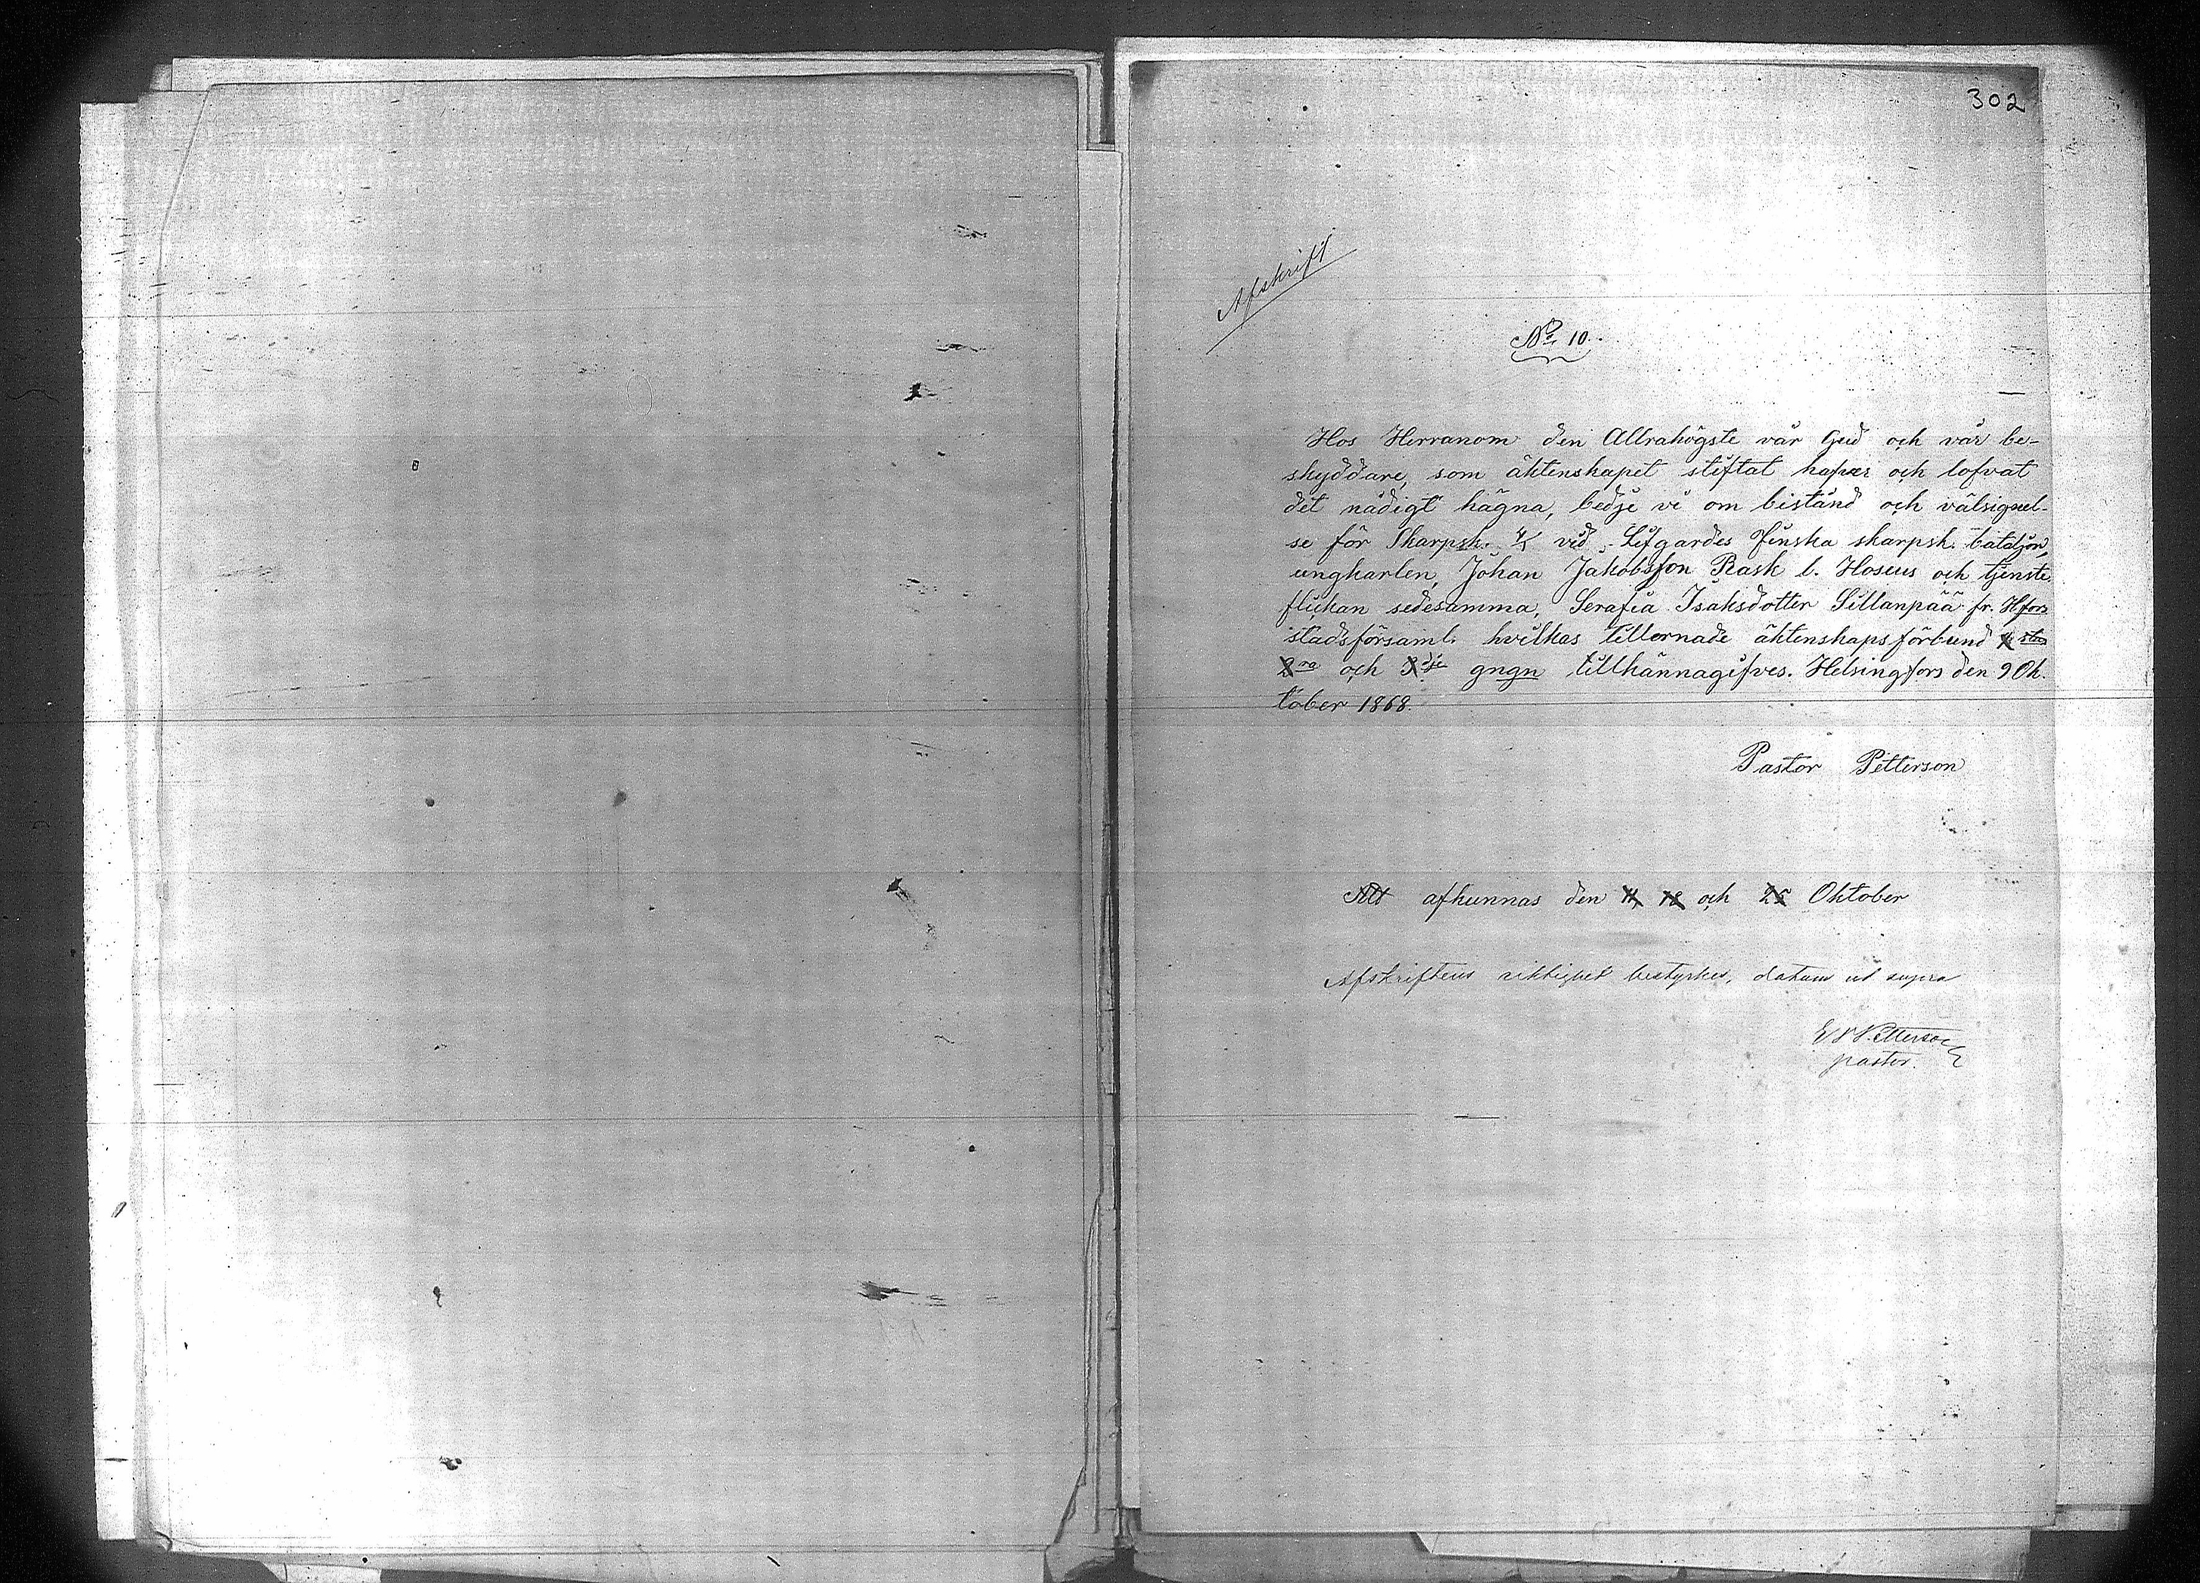 302
Afskrift
No 10.
Hos Herranom den Allrahögste vår Gud och vår be-
skyddare, som äktenskapet stiftat hafver och lofvat
det nådigt hägna, bedje vi om bistånd och välsignel-
se för Skarpsk. 4/ vid Lifgardes Finska skarpsk. bataljon,
ungkarlen, Johan Jakobsson Rask l. Hoseus och tjenste
flickan sedesamma, Serafia Isaksdotter Sillanpää fr. Hfors
stadsförsaml. hvilkas tillernade äktenskapsförbund 1 sta
2 ra och 3 dje gngn tillkännagifves. Helsingfors den 9 Ok.
tober 1868.
Pastor Petterson
Allt afkunnas den 11, 18 och 25 Oktober
Afskriftens riktighet bestyrkes, datum ut supra
Petterson
pastor.